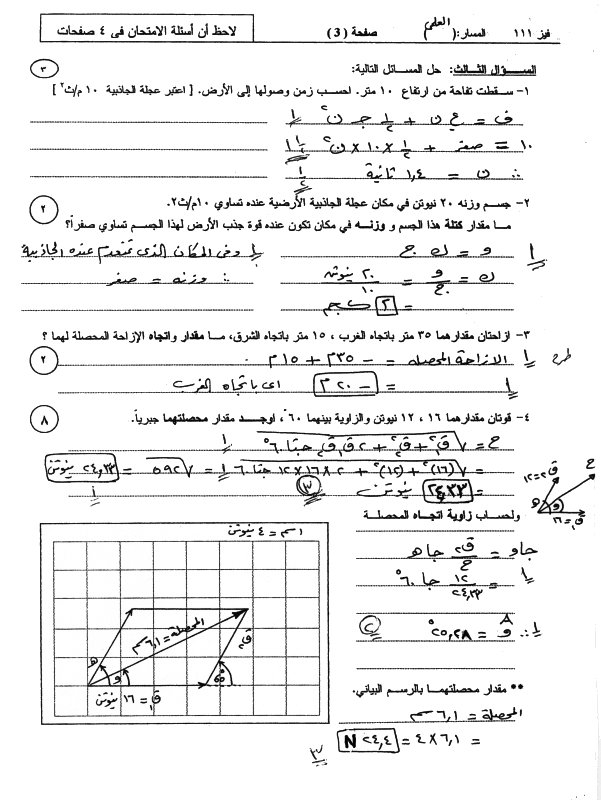 فيز ١١١ المسار: (العلمي) صفحة (3) لاحظ أن أسئلة الامتحان في ٤ صفحات
السـؤال الثالث: حل المسائل التالية:
٣
١- سقطت تفاحة من ارتفاع ١٠ متر. احسب زمن وصولها إلى الأرض. [ اعتبر عجلة الجاذبية ١٠ م/ث٢ ]
ف = ع ن + ١/٢ جـ ن٢
١٠ = صفر + ١/٢ × ١٠ × ن٢
∴ ن = ١,٤ ثانية
٢- جسم وزنه ٢٠ نيوتن في مكان عجلة الجاذبية الأرضية عنده تساوي ١٠م/ث٢.
٢
ما مقدار كتلة هذا الجسم و وزنه في مكان تكون عنده قوة جذب الأرض لهذا الجسم تساوي صفراً؟
و = ك جـ
ك = و/جـ = ٢٠ نيوتن/١٠
= ٢ كجم
وفي المكان الذي تنعدم عنده الجاذبية
∴ وزنه = صفر
٣- ازاحتان مقدارهما ٣٥ متر باتجاه الغرب ، ١٥ متر باتجاه الشرق، مـا مقدار واتجاه الإزاحة المحصلة لهما ؟
٢
الازاحة المحصله = - ٣٥م + ١٥ م
طرح
= - ٢٠ م اى باتجاه الغرب
٤- قوتان مقدارهما ١٦ ، ١٢ نيوتن والزاوية بينهما ٦٠ْ ، اوجـد مقدار محصلتهما جبرياً.
٨
ح = √ق١٢ + ق٢٢ + ٢ق١ق٢ جتا ٦٠°
= √(١٦)٢ + (١٢)٢ + ٢ × ١٦ × ١٢ جتا ٦٠ = √٥٩٢ = ٢٤,٣٣ نيوتن
= ٢٤,٣٣ نيوتن
٣
ق٢=١٢
ح
هـ
و
ق١=١٦
ولحساب زاوية اتجاه المحصلة
جاو = ق٢/ح جا هـ
= ١٢/٢٤,٣٣ جا ٦٠°
∴ و = ٢٥,٢٨°
٢
•• مقدار محصلتهما بالرسم البياني.
المحصلة = ٦,١ سم
= ٦,١ × ٤ = ٢٤,٤ N
٣
١سم = ٤ نيوتن
المحصلة = ٦,١ سم
ق٢
هـ
و
٦٠°
ق١ = ١٦ نيوتن